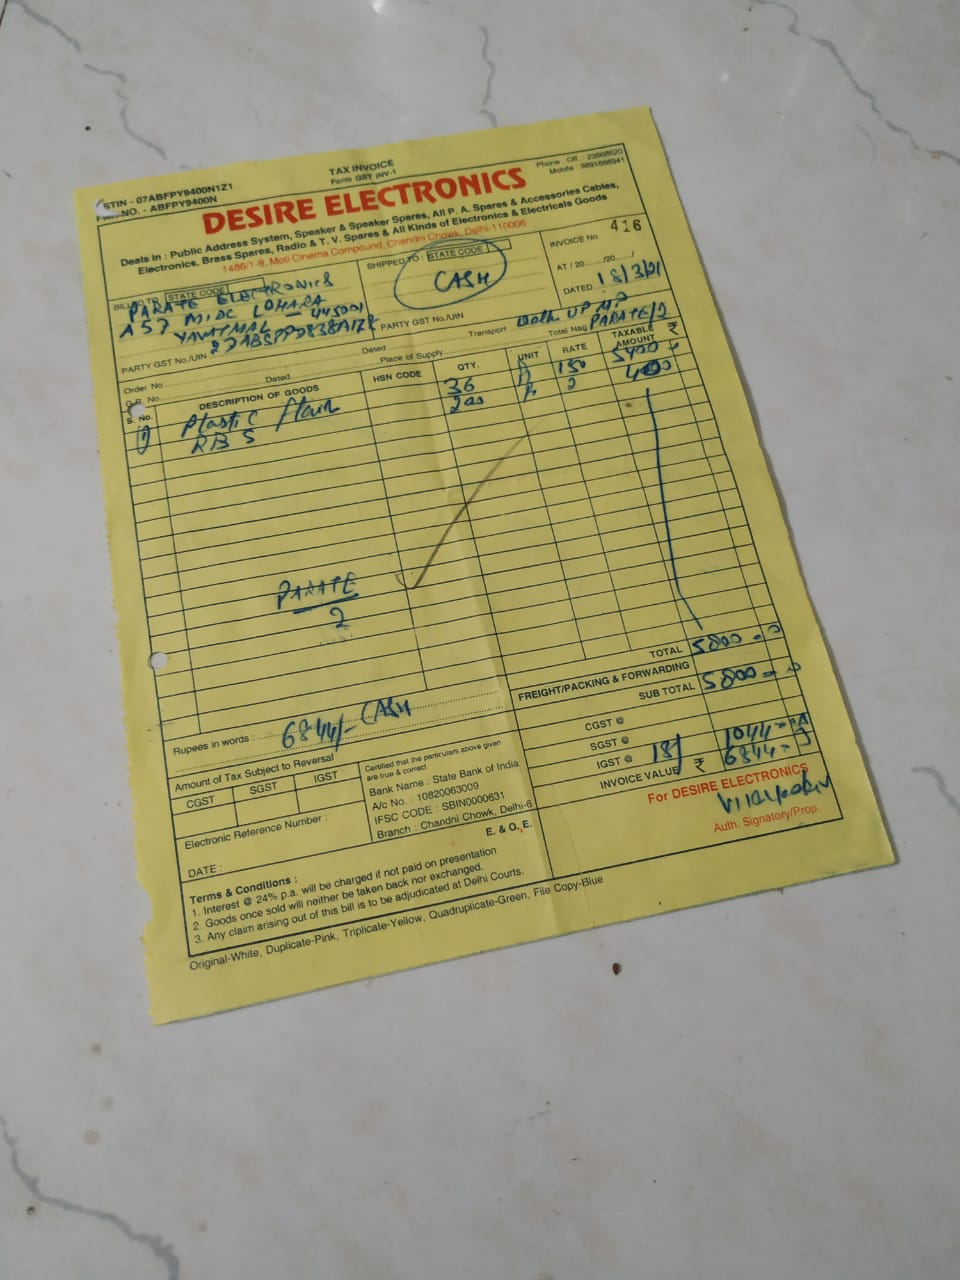 TAX INVOICE
Form GST INV-1
GSTIN - 07ABFPY9400N1Z1
PAN NO. - ABFPY9400N
Phone Off. : 23868620
Mobile : 9891668941
DESIRE ELECTRONICS
Deals in : Public Address System, Speaker & Speaker Spares, All P. A. Spares & Accessories Cables,
Electronics, Brass Spares, Radio & T. V. Spares & All Kinds of Electronics & Electricals Goods
1486/1-9, Moti Cinema Compound, Chandni Chowk, Delhi-110006
BILLED TO : STATE CODE
PARATE ELECTRONICS
A 57 MIDC LOHARA
YAVATMAL - 445001
PARTY GST No./UIN
SHIPPED TO : STATE CODE
CASH
PARTY GST No./UIN
INVOICE No. 416
AT / 20 /20 /
DATED 18/3/21
Order No. Dated Transport
G.R. No. Dated Place of Supply Total Nag PARATE/2
S. No. DESCRIPTION OF GOODS HSN CODE QTY. UNIT RATE TAXABLE AMOUNT ₹
1) Plastic 36 150 5400
RBS 200 2 400
PARATE
2
TOTAL 5800 - 0
FREIGHT/PACKING & FORWARDING
SUB TOTAL 5800 - 0
CGST @
SGST @
IGST @ 18/ 1044
INVOICE VALUE ₹ 6844
Rupees in words : 6844/- CASH
Amount of Tax Subject to Reversal
CGST SGST IGST
Electronic Reference Number :
DATE :
Certified that the particulars above given
are true & correct
Bank Name : State Bank of India
A/c No. : 10820063009
IFSC CODE : SBIN0000631
Branch : Chandni Chowk, Delhi-6
E. & O. E.
For DESIRE ELECTRONICS
Auth. Signatory/Prop
Terms & Conditions :
1. Interest @ 24% p.a. will be charged if not paid on presentation
2. Goods once sold will neither be taken back nor exchanged.
3. Any claim arising out of this bill is to be adjudicated at Delhi Courts.
Original-White, Duplicate-Pink, Triplicate-Yellow, Quadruplicate-Green, File Copy-Blue